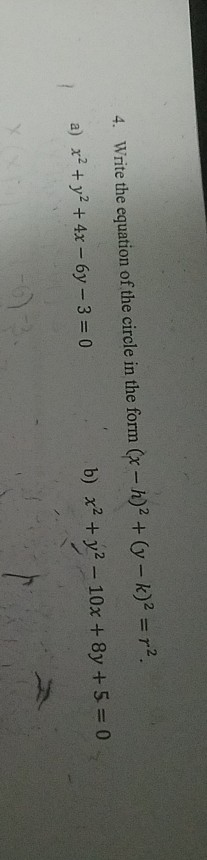 4. Write the equation of the circle in the form (x − h)² + (y − k)² = r².
a) x² + y² + 4x − 6y − 3 = 0
b) x² + y² − 10x + 8y + 5 = 0